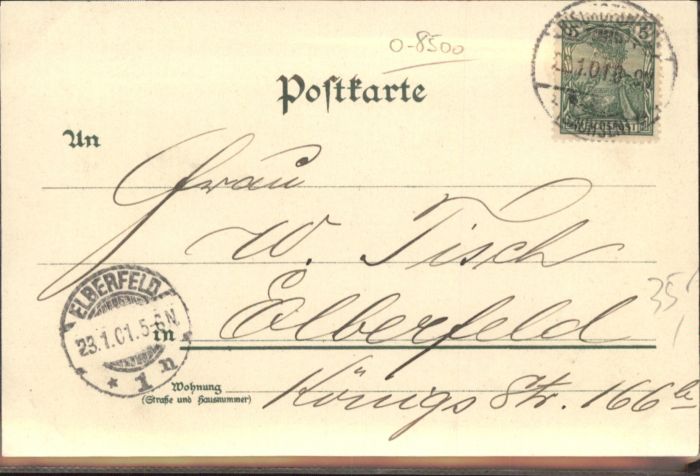 0-8500
Postkarte
An
Frau
W. Tisch
in Elberfeld
Wohnung
(Straße und Hausnummer)
Königs Str. 166
ELBERFELD
23.1.01.5-6N
* 1 n *
35